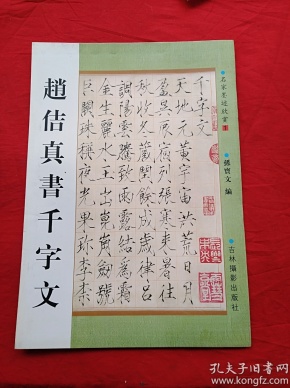 趙佶真書千字文
千字文
天地元黃宇宙洪荒日月
盈昃辰宿列張寒來暑往
秋收冬藏閏餘成歲律呂
調陽雲騰致雨露結為霜
金生麗水玉出崑岡劍號
巨闕珠稱夜光果珍李柰
孫寶文 編
吉林攝影出版社
孔夫子旧书网